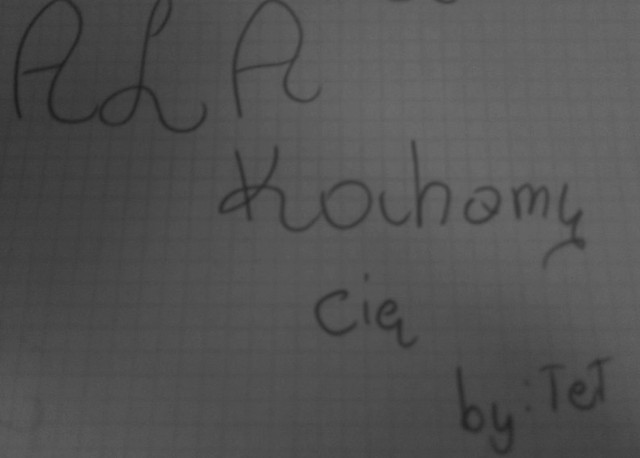 ALA
Kochamy
Cię
by: TeT